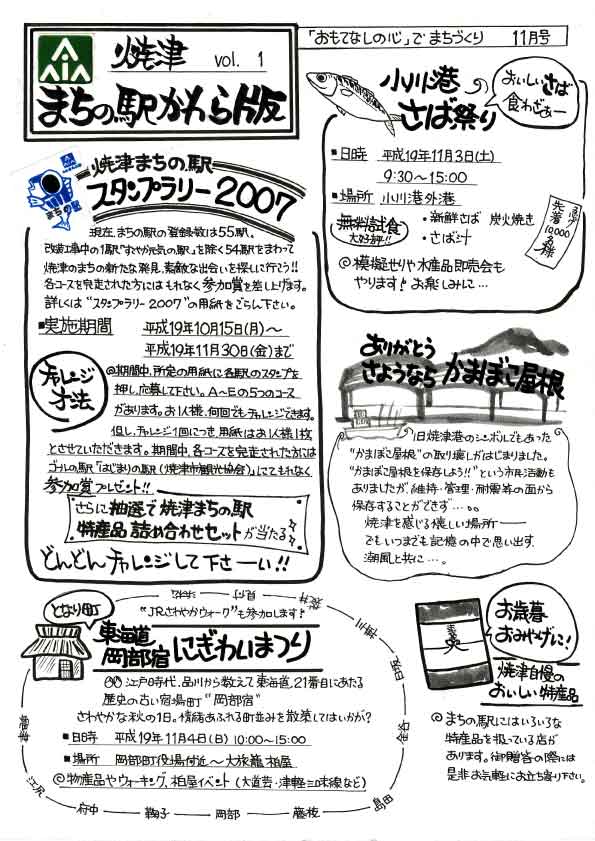 「おもてなしの心」で まちづくり 11月号
焼津 vol. 1
まちの駅かわら版
小川港
さば祭り
おいしいさば
食わざぁー
■日時 平成19年11月3日(土)
9:30〜15:00
■場所 小川港外港
無料試食
大好評!!
・新鮮さば 炭火焼き
・さば汁
先着
10,000
名様
◎模擬せりや水産品即売会も
やります! お楽しみに…
焼津まちの駅
スタンプラリー2007
まちの駅
現在、まちの駅の登録数は55駅。
改装工事中の1駅“すやか元気の駅”を除く54駅をまわって
焼津のまちの新たな発見、素敵な出会いを探しに行こう!!
各コースを完走された方にはもれなく参加賞を差し上げます。
詳しくは“スタンプラリー2007”の用紙をごらん下さい。
■実施期間 平成19年10月15日(月)〜
平成19年11月30日(金)まで
チャレンジ
方法
◎期間中、所定の用紙に各駅のスタンプを
押し、応募して下さい。A〜Eの5つのコース
があります。お1人様、何回でもチャレンジできます。
但し、チャレンジ1回につき、用紙はお1人様1枚
とさせていただきます。期間中、各コースを完走された方には
ゴールの駅「はじまりの駅(焼津市観光協会)」にてもれなく
参加賞プレゼント!!
さらに抽選で焼津まちの駅
特産品詰め合わせセットが当たる
どんどんチャレンジして下さーい!!
ありがとう
さようなら かまぼこ屋根
旧焼津港のシンボルでもあった
“かまぼこ屋根”の取り壊しがはじまりました。
“かまぼこ屋根を保存しよう!!”という市民活動も
ありましたが、維持・管理・耐震等の面から
保存することができず…。。
焼津を感じる優しい場所――
でもいつまでも記憶の中で思い出す。
潮風と共に…。
となり町
“JRさわやかウォーク”も参加します!
東海道
岡部宿 にぎわいまつり
江戸時代、品川から数えて東海道、21番目にあたる
歴史の古い宿場町“岡部宿”
さわやかな秋の1日。情緒あふれる町並みを散策してはいかが?
■日時 平成19年11月4日(日) 10:00〜15:00
■場所 岡部町役場付近〜大旅籠柏屋
◎物産品やウォーキング、柏屋イベント(大道芸・津軽三味線など)
袋井
掛川
日坂
金谷
島田
藤枝
岡部
鞠子
府中
江尻
興津
お歳暮
おみやげに!
焼津自慢の
おいしい特産品
◎まちの駅にはいろいろな
特産品を扱っている店が
あります。御贈答の際には
是非お気軽にお立ち寄り下さい。